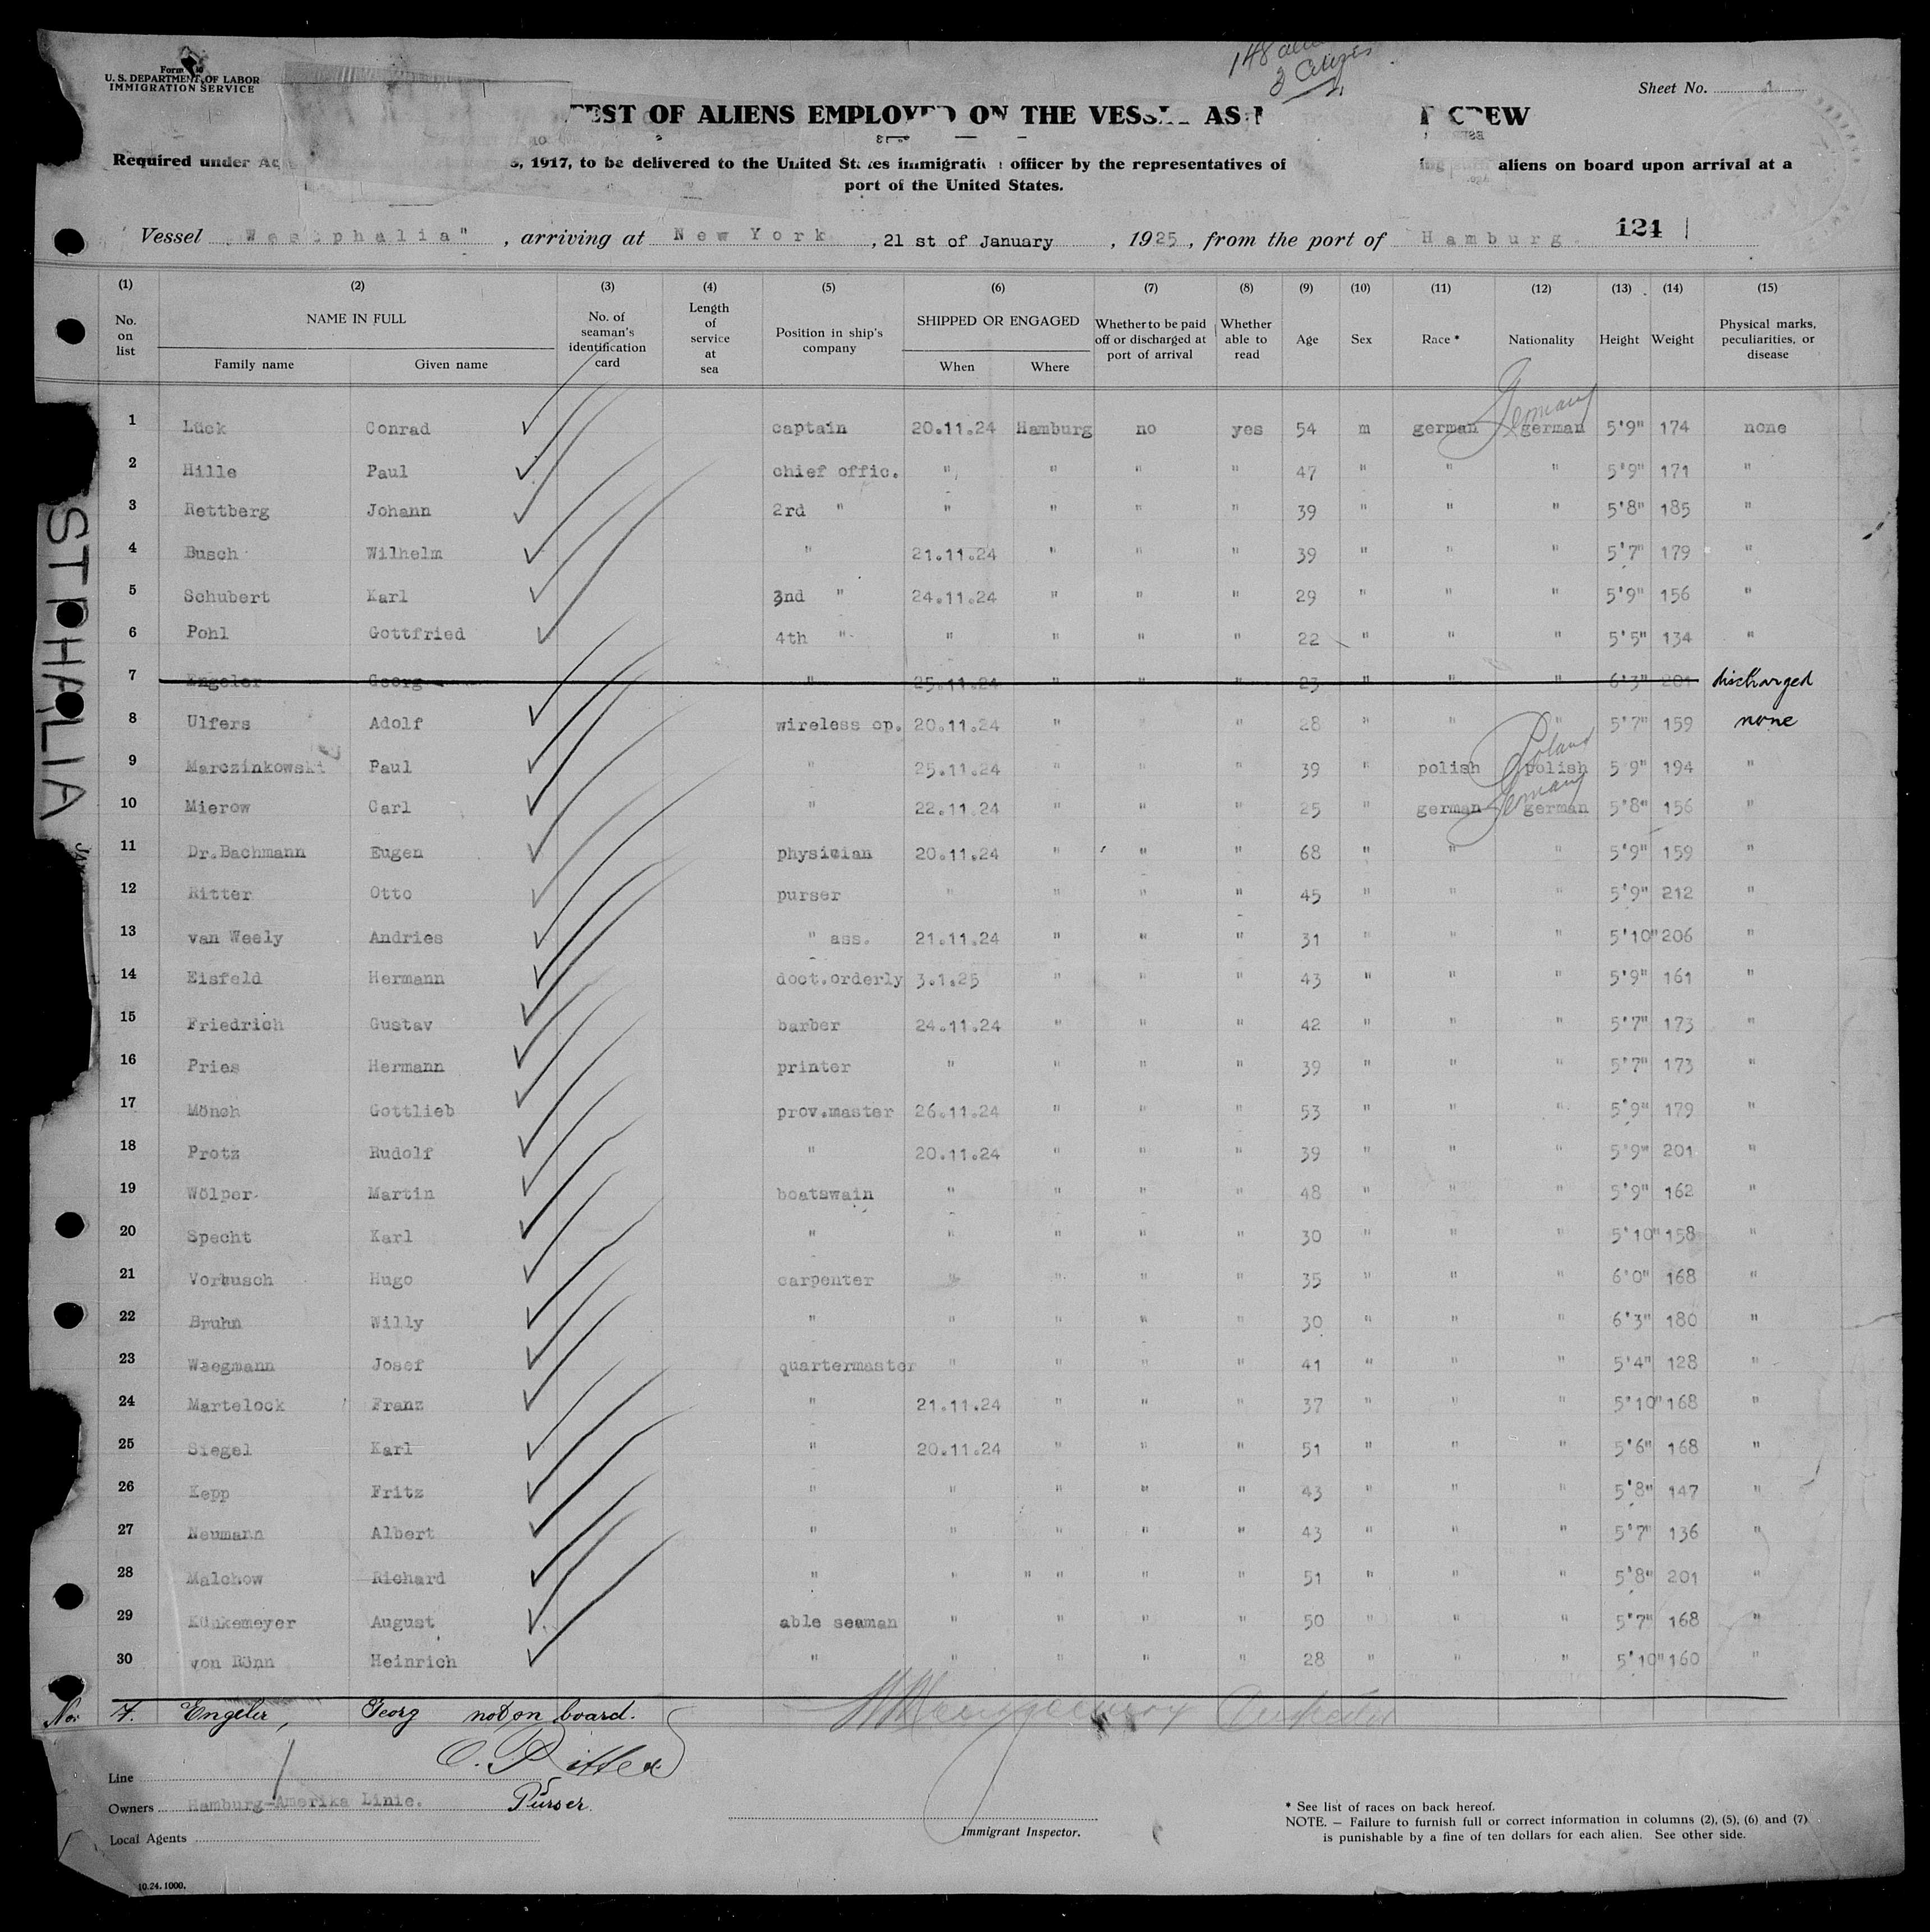 148
2
Form
U. S. DEPARTMENT OF LABOR
IMMIGRATION SERVICE
Sheet No. 1
EST OF ALIENS EMPLOYED ON THE VESSEL AS CREW
Required under Ac 5, 1917, to be delivered to the United States immigration officer by the representatives of aliens on board upon arrival at a
port of the United States.
Vessel "Westphalia", arriving at New York, 21 st of January, 1925, from the port of Hamburg. 121
(1) (2) (3) (4) (5) (6) (7) (8) (9) (10) (11) (12) (13) (14) (15)
No. on list NAME IN FULL Family name Given name No. of seaman's identification card Length of service at sea Position in ship's company SHIPPED OR ENGAGED When Where Whether to be paid off or discharged at port of arrival Whether able to read Age Sex Race* Nationality Height Weight Physical marks, peculiarities, or disease
Germany
1 Lück Conrad captain 20.11.24 Hamburg no yes 54 m german german 5'9" 174 none
2 Hille Paul chief offic. " " " " 47 " " " 5'9" 171 "
3 Rettberg Johann 2rd " " " " " 39 " " " 5'8" 185 "
4 Busch Wilhelm " 21.11.24 " " " 39 " " " 5'7" 179 "
5 Schubert Karl 3nd " 24.11.24 " " " 29 " " " 5'9" 156 "
6 Pohl Gottfried 4th " " " " " 22 " " " 5'5" 134 "
7 Engeler Georg " 25.11.24 " " " 23 " " " 6'3" 201 discharged
8 Ulfers Adolf wireless op. 20.11.24 " " " 28 " " " 5'7" 159 none
Poland
9 Marczinkowski Paul " 25.11.24 " " " 39 " polish polish 5'9" 194 "
Germany
10 Mierow Carl " 22.11.24 " " " 25 " german german 5'8" 156 "
11 Dr.Bachmann Eugen physician 20.11.24 " " " 68 " " " 5'9" 159 "
12 Ritter Otto purser " " " " 45 " " " 5'9" 212 "
13 van Weely Andries " ass. 21.11.24 " " " 31 " " " 5'10" 206 "
14 Eisfeld Hermann doct.orderly 3.1.25 " " " 43 " " " 5'9" 161 "
15 Friedrich Gustav barber 24.11.24 " " " 42 " " " 5'7" 173 "
16 Pries Hermann printer " " " " 39 " " " 5'7" 173 "
17 Mönch Gottlieb prov.master 26.11.24 " " " 53 " " " 5'9" 179 "
18 Protz Rudolf " 20.11.24 " " " 39 " " " 5'9" 201 "
19 Wölper Martin boatswain " " " " 48 " " " 5'9" 162 "
20 Specht Karl " " " " " 30 " " " 5'10" 158 "
21 Vorbusch Hugo carpenter " " " " 35 " " " 6'0" 168 "
22 Bruhn Willy " " " " " 30 " " " 6'3" 180 "
23 Waegmann Josef quartermaster " " " " 41 " " " 5'4" 128 "
24 Martelock Franz " 21.11.24 " " " 37 " " " 5'10" 168 "
25 Siegel Karl " 20.11.24 " " " 51 " " " 5'6" 168 "
26 Kepp Fritz " " " " " 43 " " " 5'8" 147 "
27 Neumann Albert " " " " " 43 " " " 5'7" 136 "
28 Malchow Richard " " " " " " 51 " " " 5'8" 201 "
29 Künkemeyer August able seaman " " " " 50 " " " 5'7" 168 "
30 von Rönn Heinrich " " " " " 28 " " " 5'10" 160 "
No: 7. Engeler, Georg not on board.
O. Ritter
Purser.
Line
Owners Hamburg-Amerika Linie.
Local Agents
Immigrant Inspector.
* See list of races on back hereof.
NOTE. — Failure to furnish full or correct information in columns (2), (5), (6) and (7)
is punishable by a fine of ten dollars for each alien. See other side.
10.24.1000.
STPHALIA